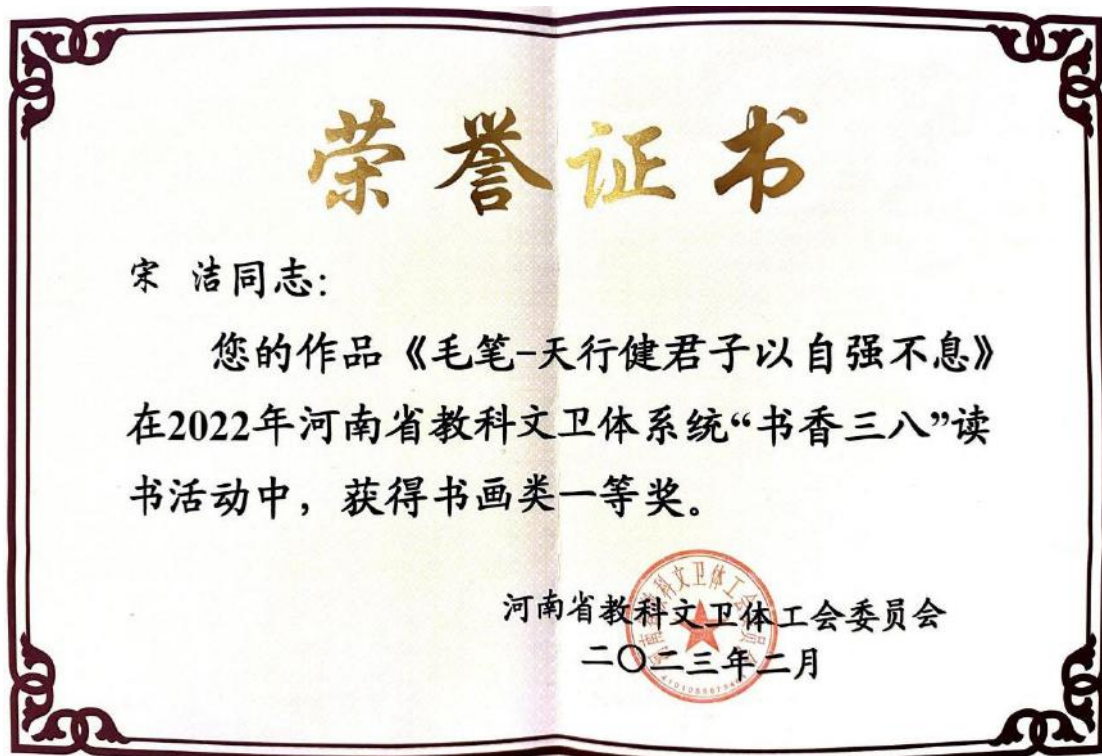 荣誉证书
宋 洁同志:
您的作品《毛笔-天行健君子以自强不息》
在2022年河南省教科文卫体系统“书香三八”读
书活动中，获得书画类一等奖。
河南省教科文卫体工会委员会
二〇二三年二月